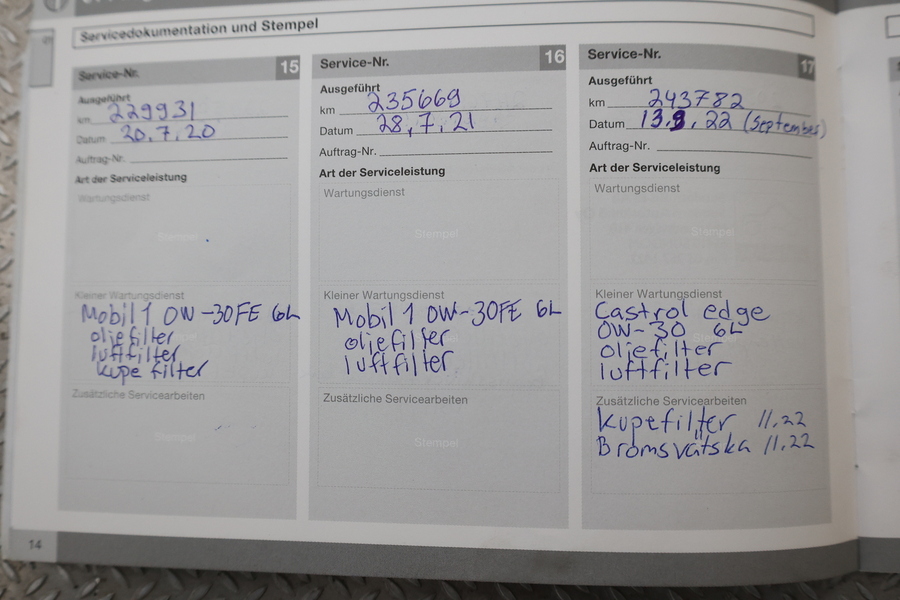 Servicedokumentation und Stempel
Service-Nr. 15
Ausgeführt
km 229931
Datum 20.7.20
Auftrag-Nr.
Art der Serviceleistung
Wartungsdienst
Stempel
Kleiner Wartungsdienst
Mobil 1 0W-30FE 6L
oljefilter
luftfilter
kupefilter
Zusätzliche Servicearbeiten
Stempel
Service-Nr. 16
Ausgeführt
km 235669
Datum 28.7.21
Auftrag-Nr.
Art der Serviceleistung
Wartungsdienst
Stempel
Kleiner Wartungsdienst
Mobil 1 0W-30FE 6L
oljefilter
luftfilter
Zusätzliche Servicearbeiten
Stempel
Service-Nr. 17
Ausgeführt
km 243782
Datum 13.9.22 (September)
Auftrag-Nr.
Art der Serviceleistung
Wartungsdienst
Stempel
Kleiner Wartungsdienst
Castrol edge
0W-30 6L
oljefilter
luftfilter
Zusätzliche Servicearbeiten
Kupefilter 11.22
Bromsvätska 11.22
14